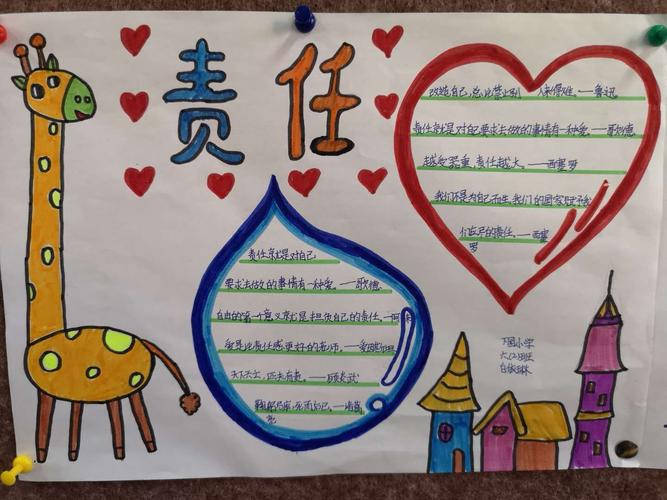 责任
改造自己,总比禁止别 人来得难。——鲁迅
责任就是对自己要求去做的事情有一种爱。——歌德
越受尊重,责任越大。——西塞罗
我们不是为自己而生,我们的国家赋予我
们应尽的责任。——西塞
罗
责任就是对自己
要求去做的事情有一种爱。——歌德
自由的第一个意义就是担负自己的责任。——
爱是比责任感更好的老师。——爱因斯坦
天下兴亡,匹夫有责。——顾炎武
鞠躬尽瘁,死而后已。——诸葛
亮
小学
六(2)班